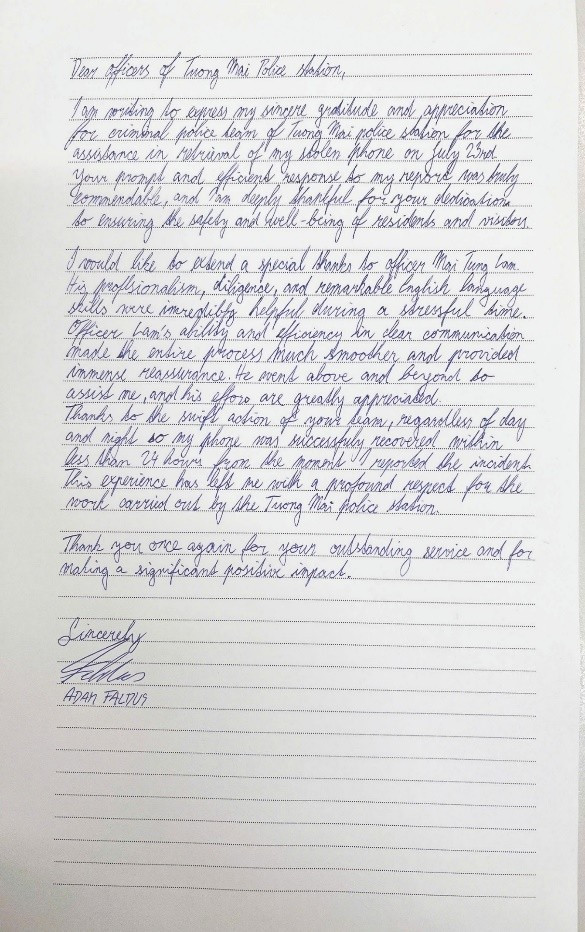 Dear officers of Tuong Mai Police station,
I am writing to express my sincere gratitude and appreciation
for criminal police team of Tuong Mai police station for the
assistance in retrieval of my stolen phone on July 23rd
Your prompt and efficient response to my report was truly
commendable, and I am deeply thankful for your dedication
to ensuring the safety and well-being of residents and visitors.
I would like to extend a special thanks to officer Mai Tung Lam.
His proffsionalism, diligence, and remarkable English language
skills were imredilbly helpful during a stressful time.
Officer Lam's ability and efficiency in clear communication
made the entire process much smoother and provided
immense reassurance. He went above and beyond to
assist me, and his effors are greatly appreciated.
Thanks to the swift action of your team, regardless of day
and night so my phone was successfuly recovered within
less than 24 hours from the moment I reported the incident.
This experience has left me with a profound respect for the
work carried out by the Tuong Mai police station.
Thank you once again for your outstanding service and for
making a significant positive impact.
Sincerely
ADAM FALDUS